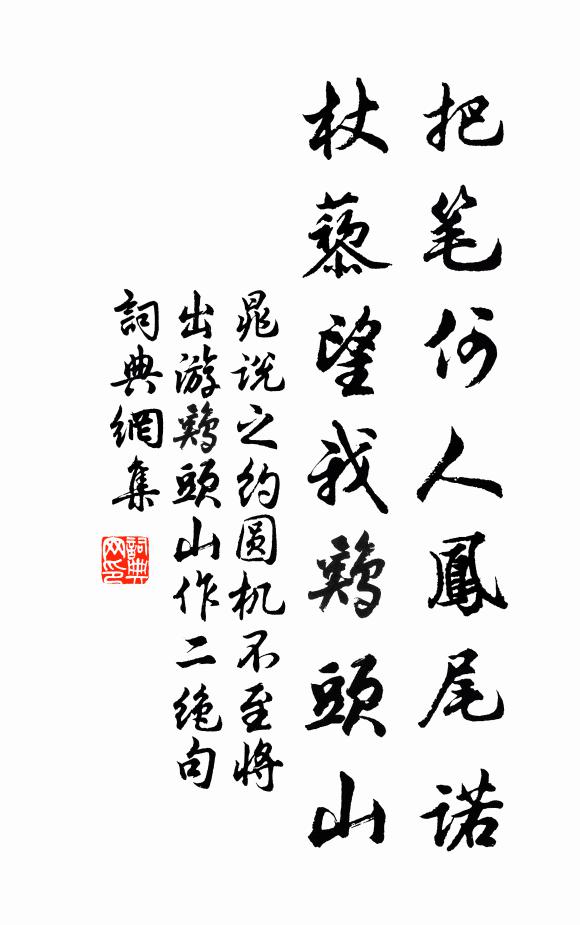 把笔何人鳳尾诺
杖藜望我鷄頭山
晁说之约圆机不至将
出游鷄頭山作二绝句
詞典網集
詞典网印